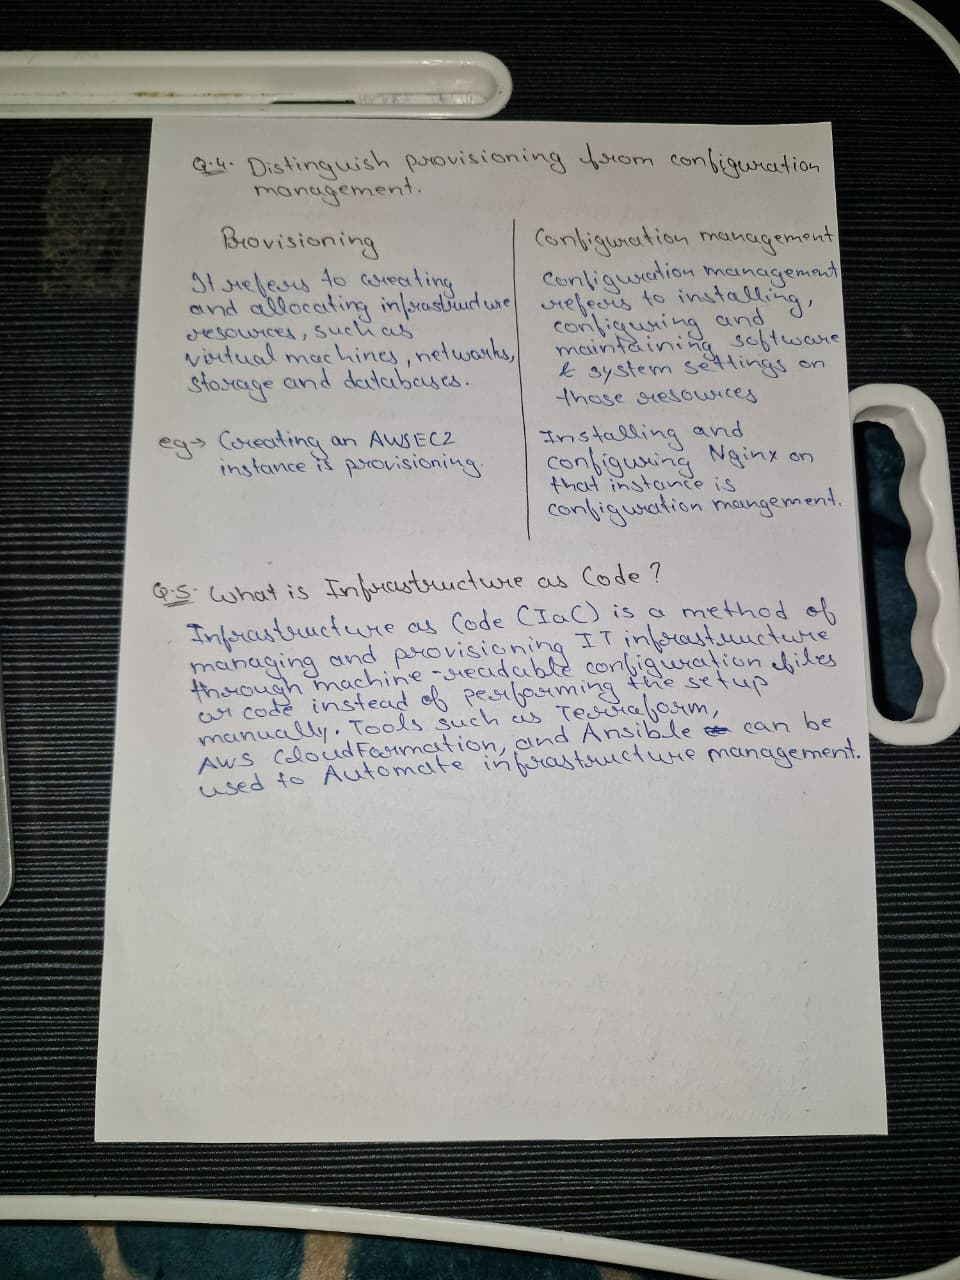 Q.4. Distinguish provisioning from configuration
management.
Provisioning
It refers to creating
and allocating infrastructure
resources, such as
virtual machines, networks,
storage and databases.
eg→ Creating an AWS EC2
instance is provisioning.
Configuration management
Configuration management
refers to installing,
configuring and
maintaining software
& system settings on
those resources
Installing and
configuring Nginx on
that instance is
configuration mangement.
Q.5. What is Infrastructure as Code?
Infrastructure as Code (IaC) is a method of
managing and provisioning IT infrastructure
through machine-readable configuration files
or code instead of performing the setup
manually. Tools such as Terraform,
AWS CloudFormation, and Ansible can be
used to Automate infrastructure management.